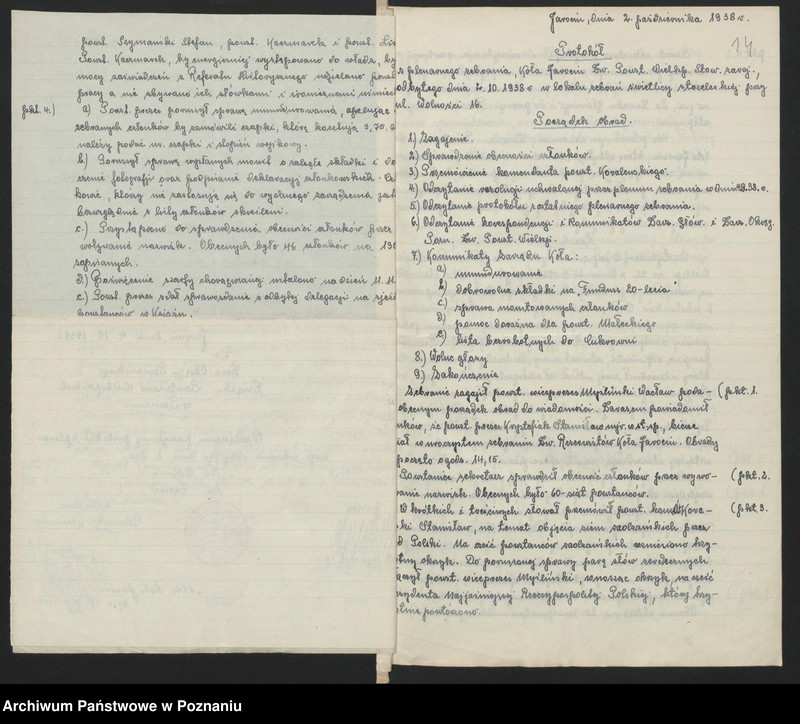 powst. Szymański Stefan, powst. Kaczmarek i powst. Lis
Powst. Kaczmarek, by energiczniej występowano do władz, by
mocy zaświadczeń z Referatu Historycznego udzielano
pracy a nie zbywano ich słówkami i
pkt. 4.) a) Powst. prezes poruszył sprawę umundurowania, apelując
zebranych członków by zamówili czapki, które kosztują 9,70.
należy podać nr. czapki i stopień wojskowy.
b.) Poruszył sprawę wysłanych monit o zaległe składki i do
czenie fotografji oraz podpisanie deklaracyj członkowskich.
kowie, którzy nie zastosują się do wydanego zarządzenia
bezwzględnie z listy członków skreśleni.
c.) Przystąpiono do sprawdzenia obecności członków przez
woływanie nazwisk. Obecnych było 46 członków na 190
zapisanych.
d.) Poświęcenie szarfy chorągwianej ustalono na dzień 11.11.
e.) Powst. prezes zdał sprawozdanie z odbytej delegacji na
Powstańców w Książu.
Jarocin, dnia 2. października 1938 r.
14
Protokół
z plenarnego zebrania, Koła Jarocin Zw. Powst. Wielkp. Stow. zarej.,
odbytego dnia 2.10.1938 r w lokalu zebrań świetlicy strzeleckiej przy
ul. Wolności 16.
Porządek obrad.
1.) Zagajenie.
2.) Sprawdzenie obecności członków.
3.) Przemówienie komendanta powst. Kowalskiego.
4.) Odczytanie rezolucji uchwalonej przez plenum zebrania w dniu 38. r.
5.) Odczytanie protokółu z ostatniego plenarnego zebrania.
6.) Odczytanie korespondencji i Komunikatów Zarz. Głów. i Zarz. Okręg.
Pozn. Zw. Powst. Wielkp.
7.) Komunikaty Zarządu Koła:
a) umundurowanie
b) dobrowolne składki na „Fundusz 20-lecia"
c) sprawa monitowanych członków
d) pomoc doraźna dla powst. Małeckiego
e) lista bezrobotnych do Cukrowni
8.) Wolne głosy
9.) Zakończenie
Zebranie zagaił powst. wiceprezes Myśliński Wacław poda- (pkt. 1.
obecnym porządek obrad do wiadomości. Zarazem powiadomił
nków, że powst. prezes Krysztofiak Stanisław mjr. w st. sp., bierze
iał w uroczystem zebraniu Zw. Rezerwistów Koła Jarocin. Obrady
poczęto o godz. 14,15.
Powstaniec sekretarz sprawdził obecność członków przez wywo- (pkt. 2.
anie nazwisk. Obecnych było 60-siąt powstańców.
W krótkich i treściwych słowach przemówił powst. komdt Kowa- (pkt. 3.
ski Stanisław, na temat objęcia ziem zaolzańskich przez
Polski. Na cześć powstańców zaolzańskich wzniesiono trzy-
tny okrzyk. Do poruszonej sprawy parę słów serdecznych
powst. wiceprezes Myśliński, wnosząc okrzyk, na cześć
ezydenta Najjaśniejszej Rzeczypospolitej Polskiej, który trzy-
otnie powtórzono.
Archiwum Państwowe w Poznaniu